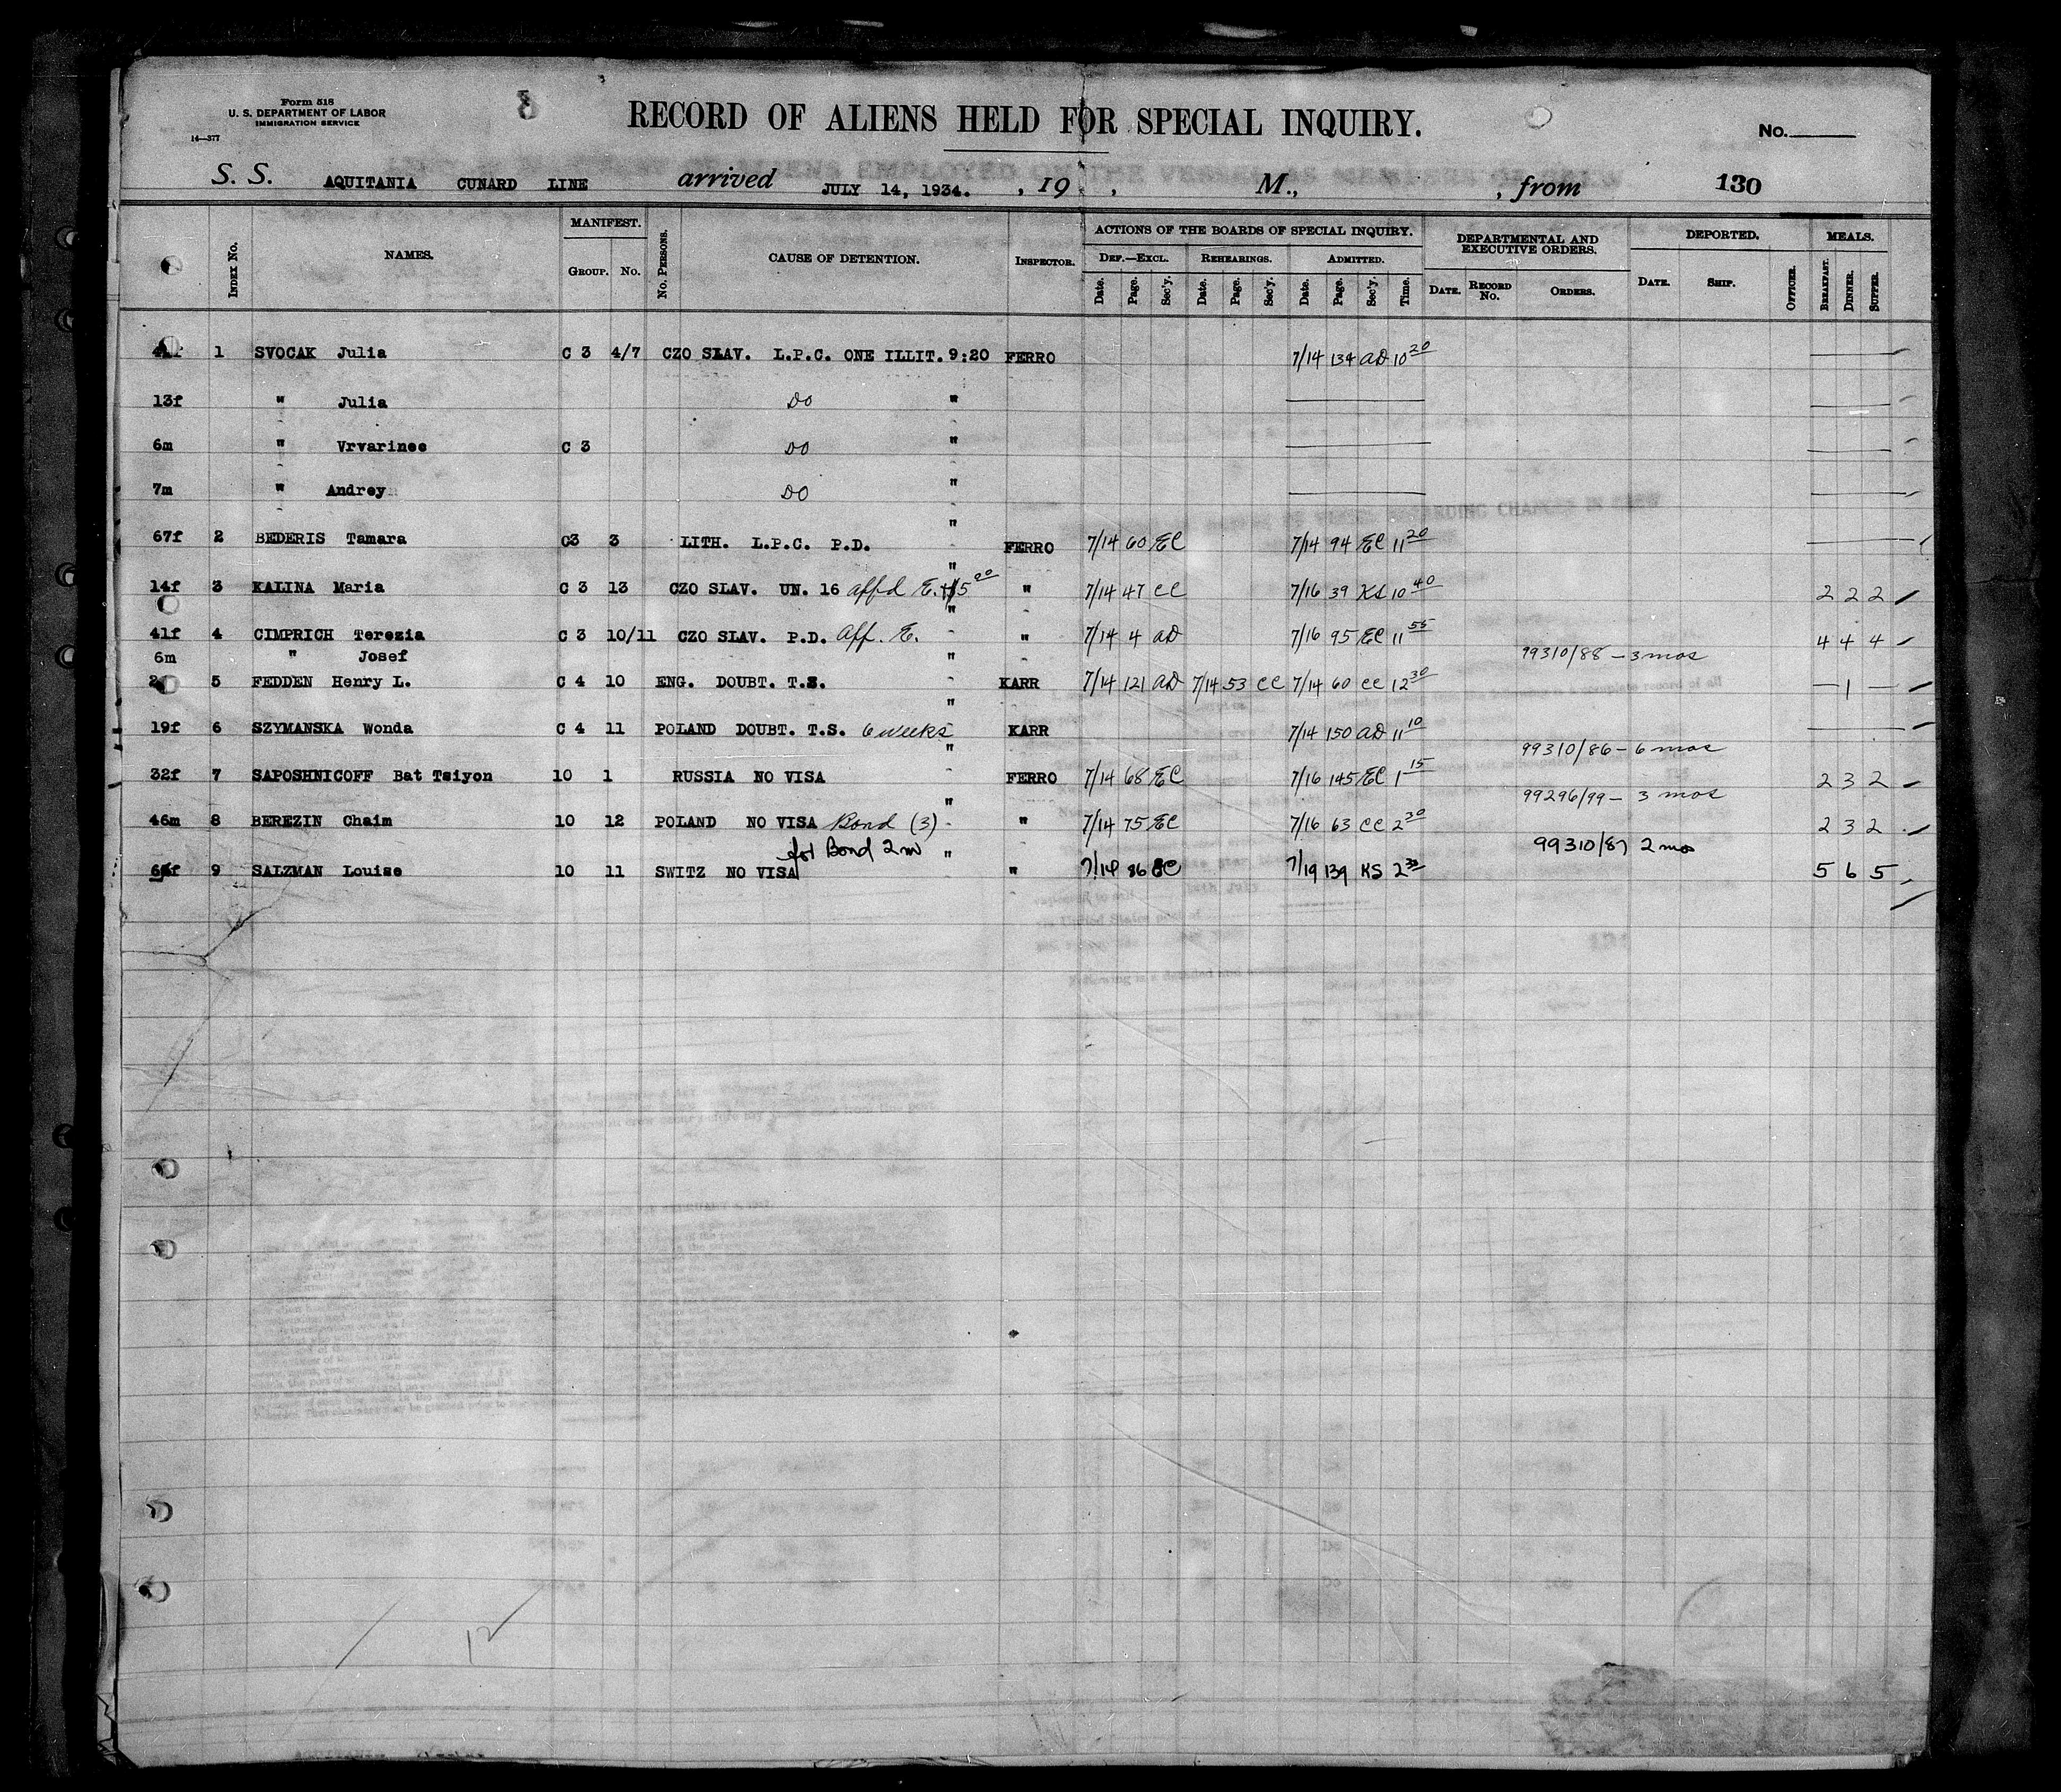 Form 518
U. S. DEPARTMENT OF LABOR
IMMIGRATION SERVICE
14—377
8
RECORD OF ALIENS HELD FOR SPECIAL INQUIRY.
No.
S. S. AQUITANIA CUNARD LINE arrived JULY 14, 1934. , 19 , M., , from 130
INDEX NO. NAMES. MANIFEST. GROUP. NO. NO. PERSONS. CAUSE OF DETENTION. INSPECTOR. ACTIONS OF THE BOARDS OF SPECIAL INQUIRY. DEPARTMENTAL AND EXECUTIVE ORDERS. DEPORTED. MEALS.
DEF.—EXCL. REHEARINGS. ADMITTED.
Date. Page. Sec'y. Date. Page. Sec'y. Date. Page. Sec'y. Time. DATE. RECORD NO. ORDERS. DATE. SHIP. OFFICER. BREAKFAST. DINNER. SUPPER.
1 SVOCAK Julia C 3 4/7 CZO SLAV. L.P.C. ONE ILLIT. 9:20 FERRO 7/14 134 AD 10 20
13f " Julia DO "
6m " Vrvarinee C 3 DO "
7m " Andrey DO "
"
67f 2 BEDERIS Tamara C3 3 LITH. L.P.C. P.D. FERRO 7/14 60 EC 7/14 94 EC 11 20
"
14f 3 KALINA Maria C 3 13 CZO SLAV. UN. 16 affd E. " 7/14 47 CC 7/16 39 KS 10 40 2 2 2
"
41f 4 CIMPRICH Terezia C 3 10/11 CZO SLAV. P.D. Aff. E. " 7/14 4 AD 7/16 95 EC 11 55 4 4 4
6m " Josef " 99310/88 - 3 mos
5 FEDDEN Henry L. C 4 10 ENG. DOUBT. T.S. KARR 7/14 121 AD 7/14 53 CC 7/14 60 CC 12 30 — 1 —
"
19f 6 SZYMANSKA Wonda C 4 11 POLAND DOUBT. T.S. 6 weeks KARR 7/14 150 AD 11 10
" 99310/86 - 6 mos
32f 7 SAPOSHNICOFF Bat Tsiyon 10 1 RUSSIA NO VISA FERRO 7/14 68 EC 7/16 145 EC 1 15 2 3 2
" 99296/99 - 3 mos
46m 8 BEREZIN Chaim 10 12 POLAND NO VISA Bond (3) " 7/14 75 EC 7/16 63 CC 2 30 2 3 2
for Bond 2 m " 99310/87 2 mos
9 SALZMAN Louise 10 11 SWITZ NO VISA " 7/14 86 EC 7/19 139 KS 2 30 5 6 5
12